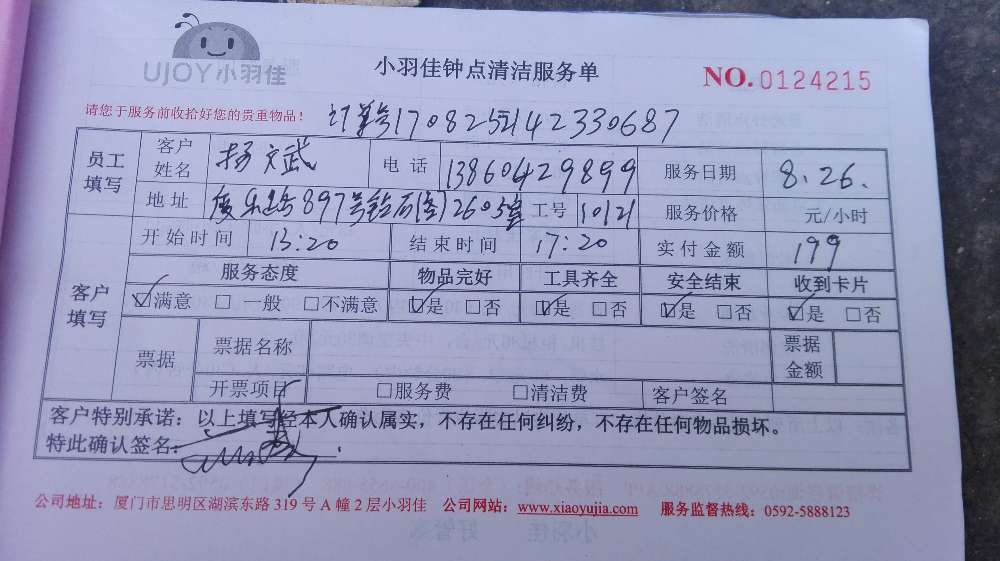 UJOY小羽佳
小羽佳钟点清洁服务单
NO.0124215
请您于服务前收拾好您的贵重物品！
员工填写 客户姓名 杨文武 电话 13860429899 服务日期 8.26.
地址 897号 2603室 工号 10121 服务价格 元/小时
开始时间 13:20 结束时间 17:20 实付金额 199
客户填写 服务态度 物品完好 工具齐全 安全结束 收到卡片
☑满意 □一般 □不满意 ☑是 □否 ☑是 □否 ☑是 □否 ☑是 □否
票据 票据名称 票据金额
开票项目 □服务费 □清洁费 客户签名
客户特别承诺：以上填写经本人确认属实，不存在任何纠纷，不存在任何物品损坏。
特此确认签名：
公司地址：厦门市思明区湖滨东路319号A幢2层小羽佳 公司网站：www.xiaoyujia.com 服务监督热线：0592-5888123